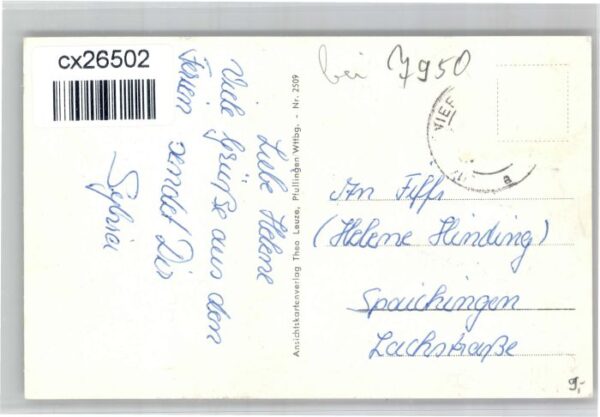 cx26502
bei 7950
Liebe Helene
Viele Grüße aus den
Ferien sendet Dir
Sylvia
Ansichtskartenverlag Theo Leuze, Pfullingen Wttbg. - Nr. 2509
VIEF
a
An Fiffi
(Helene Hinding)
Spaichingen
Lachstraße
9,-